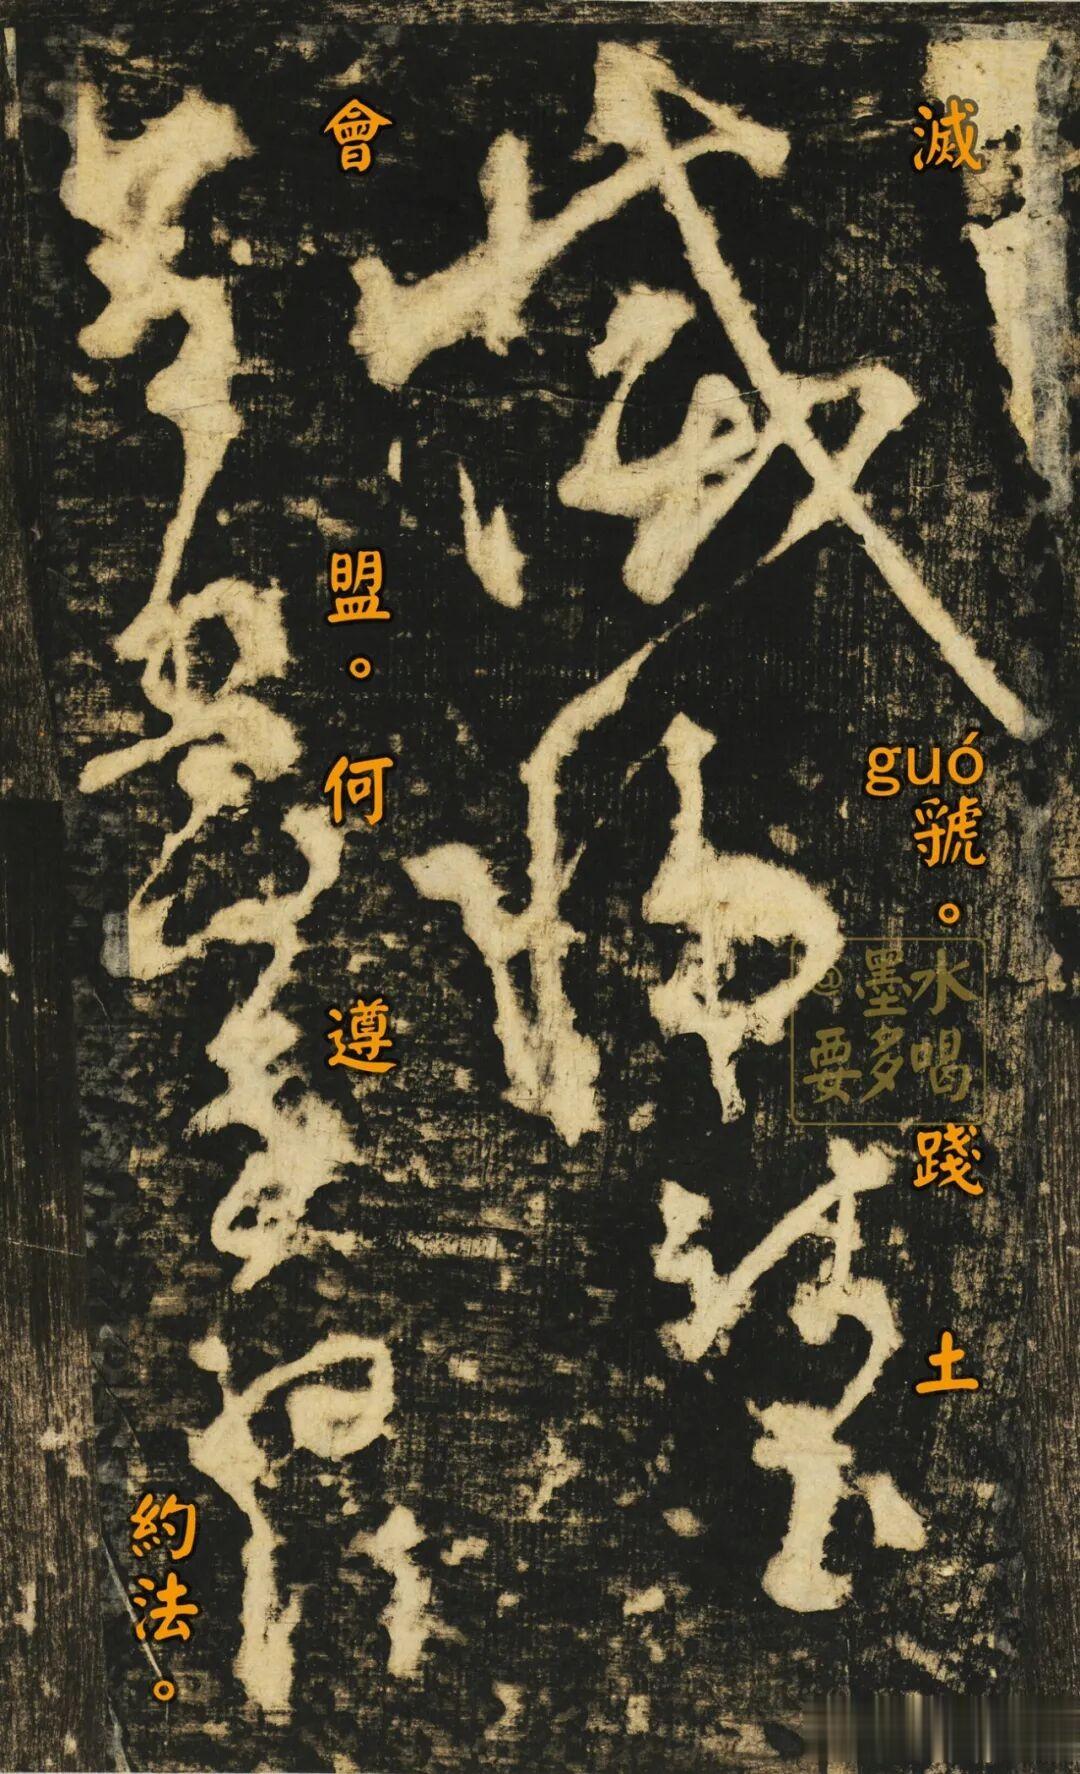 滅guó虢。踐土
會盟。何遵
約法。
@墨水
要多喝